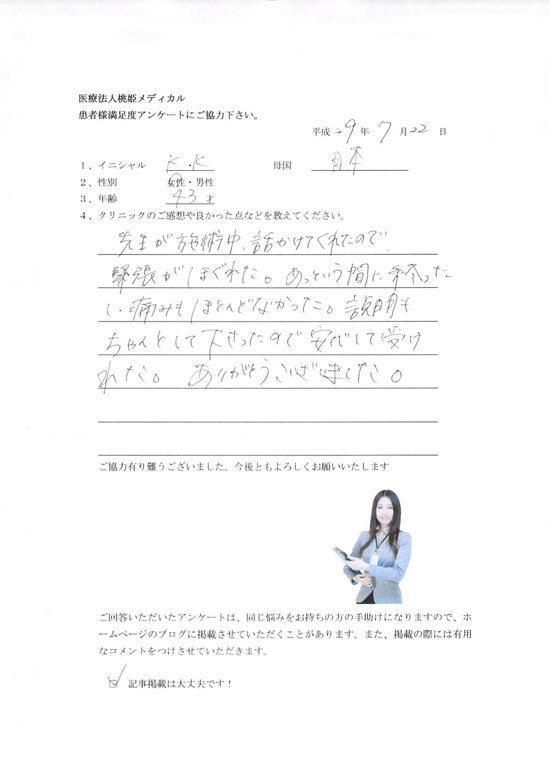 医療法人桃姫メディカル
患者様満足度アンケートにご協力下さい。
平成 29 年 7 月 22 日
1、イニシャル K.K 母国 日本
2、性別 女性・男性
3、年齢 43 才
4、クリニックのご感想や良かった点などを教えてください。
先生が施術中、話かけてくれたので
緊張がほぐれた。あっという間に 終わった
し、痛みもほとんどなかった。説明も
ちゃんとして下さったので安心して受け
れた。 ありがとうございました。
ご協力有り難うございました。今後ともよろしくお願いいたします
ご回答いただいたアンケートは、同じ悩みをお持ちの方の手助けになりますので、ホ
ームページのブログに掲載させていただくことがあります。また、掲載の際には有用
なコメントをつけさせていただきます。
記事掲載は大丈夫です！